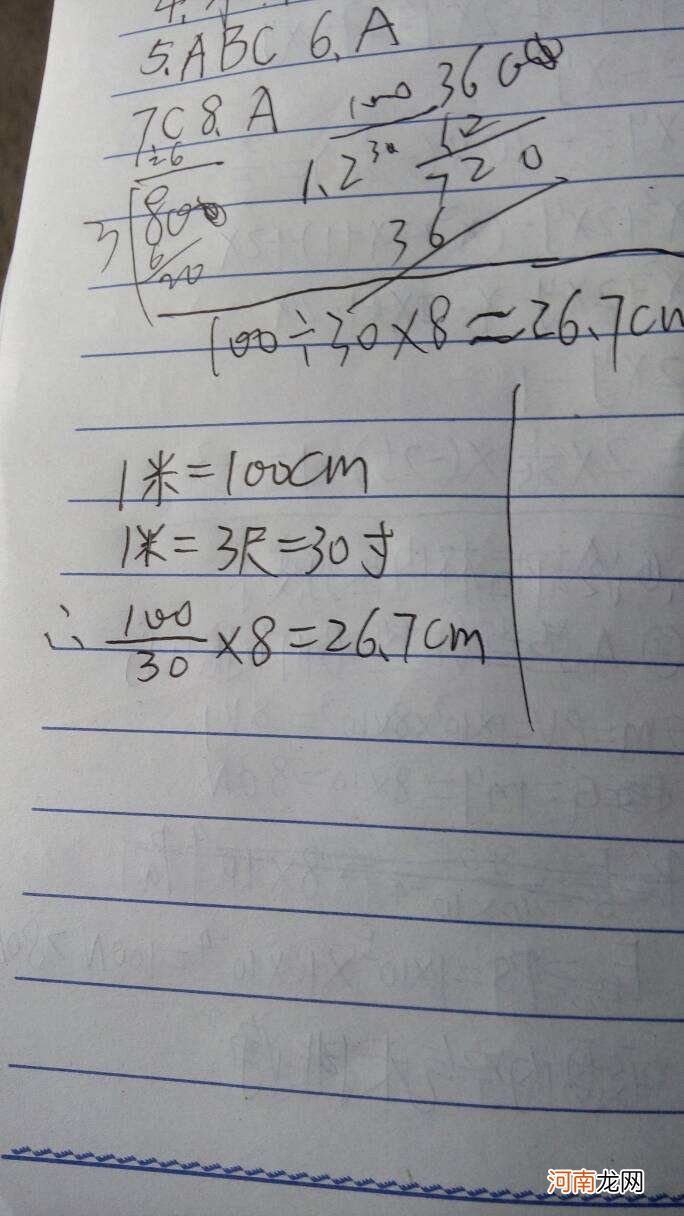 5. ABC 6. A
7. C 8. A
100 360
1.2 30 12
720
36
3 800
6
20
100÷30×8≈26.7cm
1米=100cm
1米=3尺=30寸
∴ 100/30 ×8=26.7cm
河南龙网